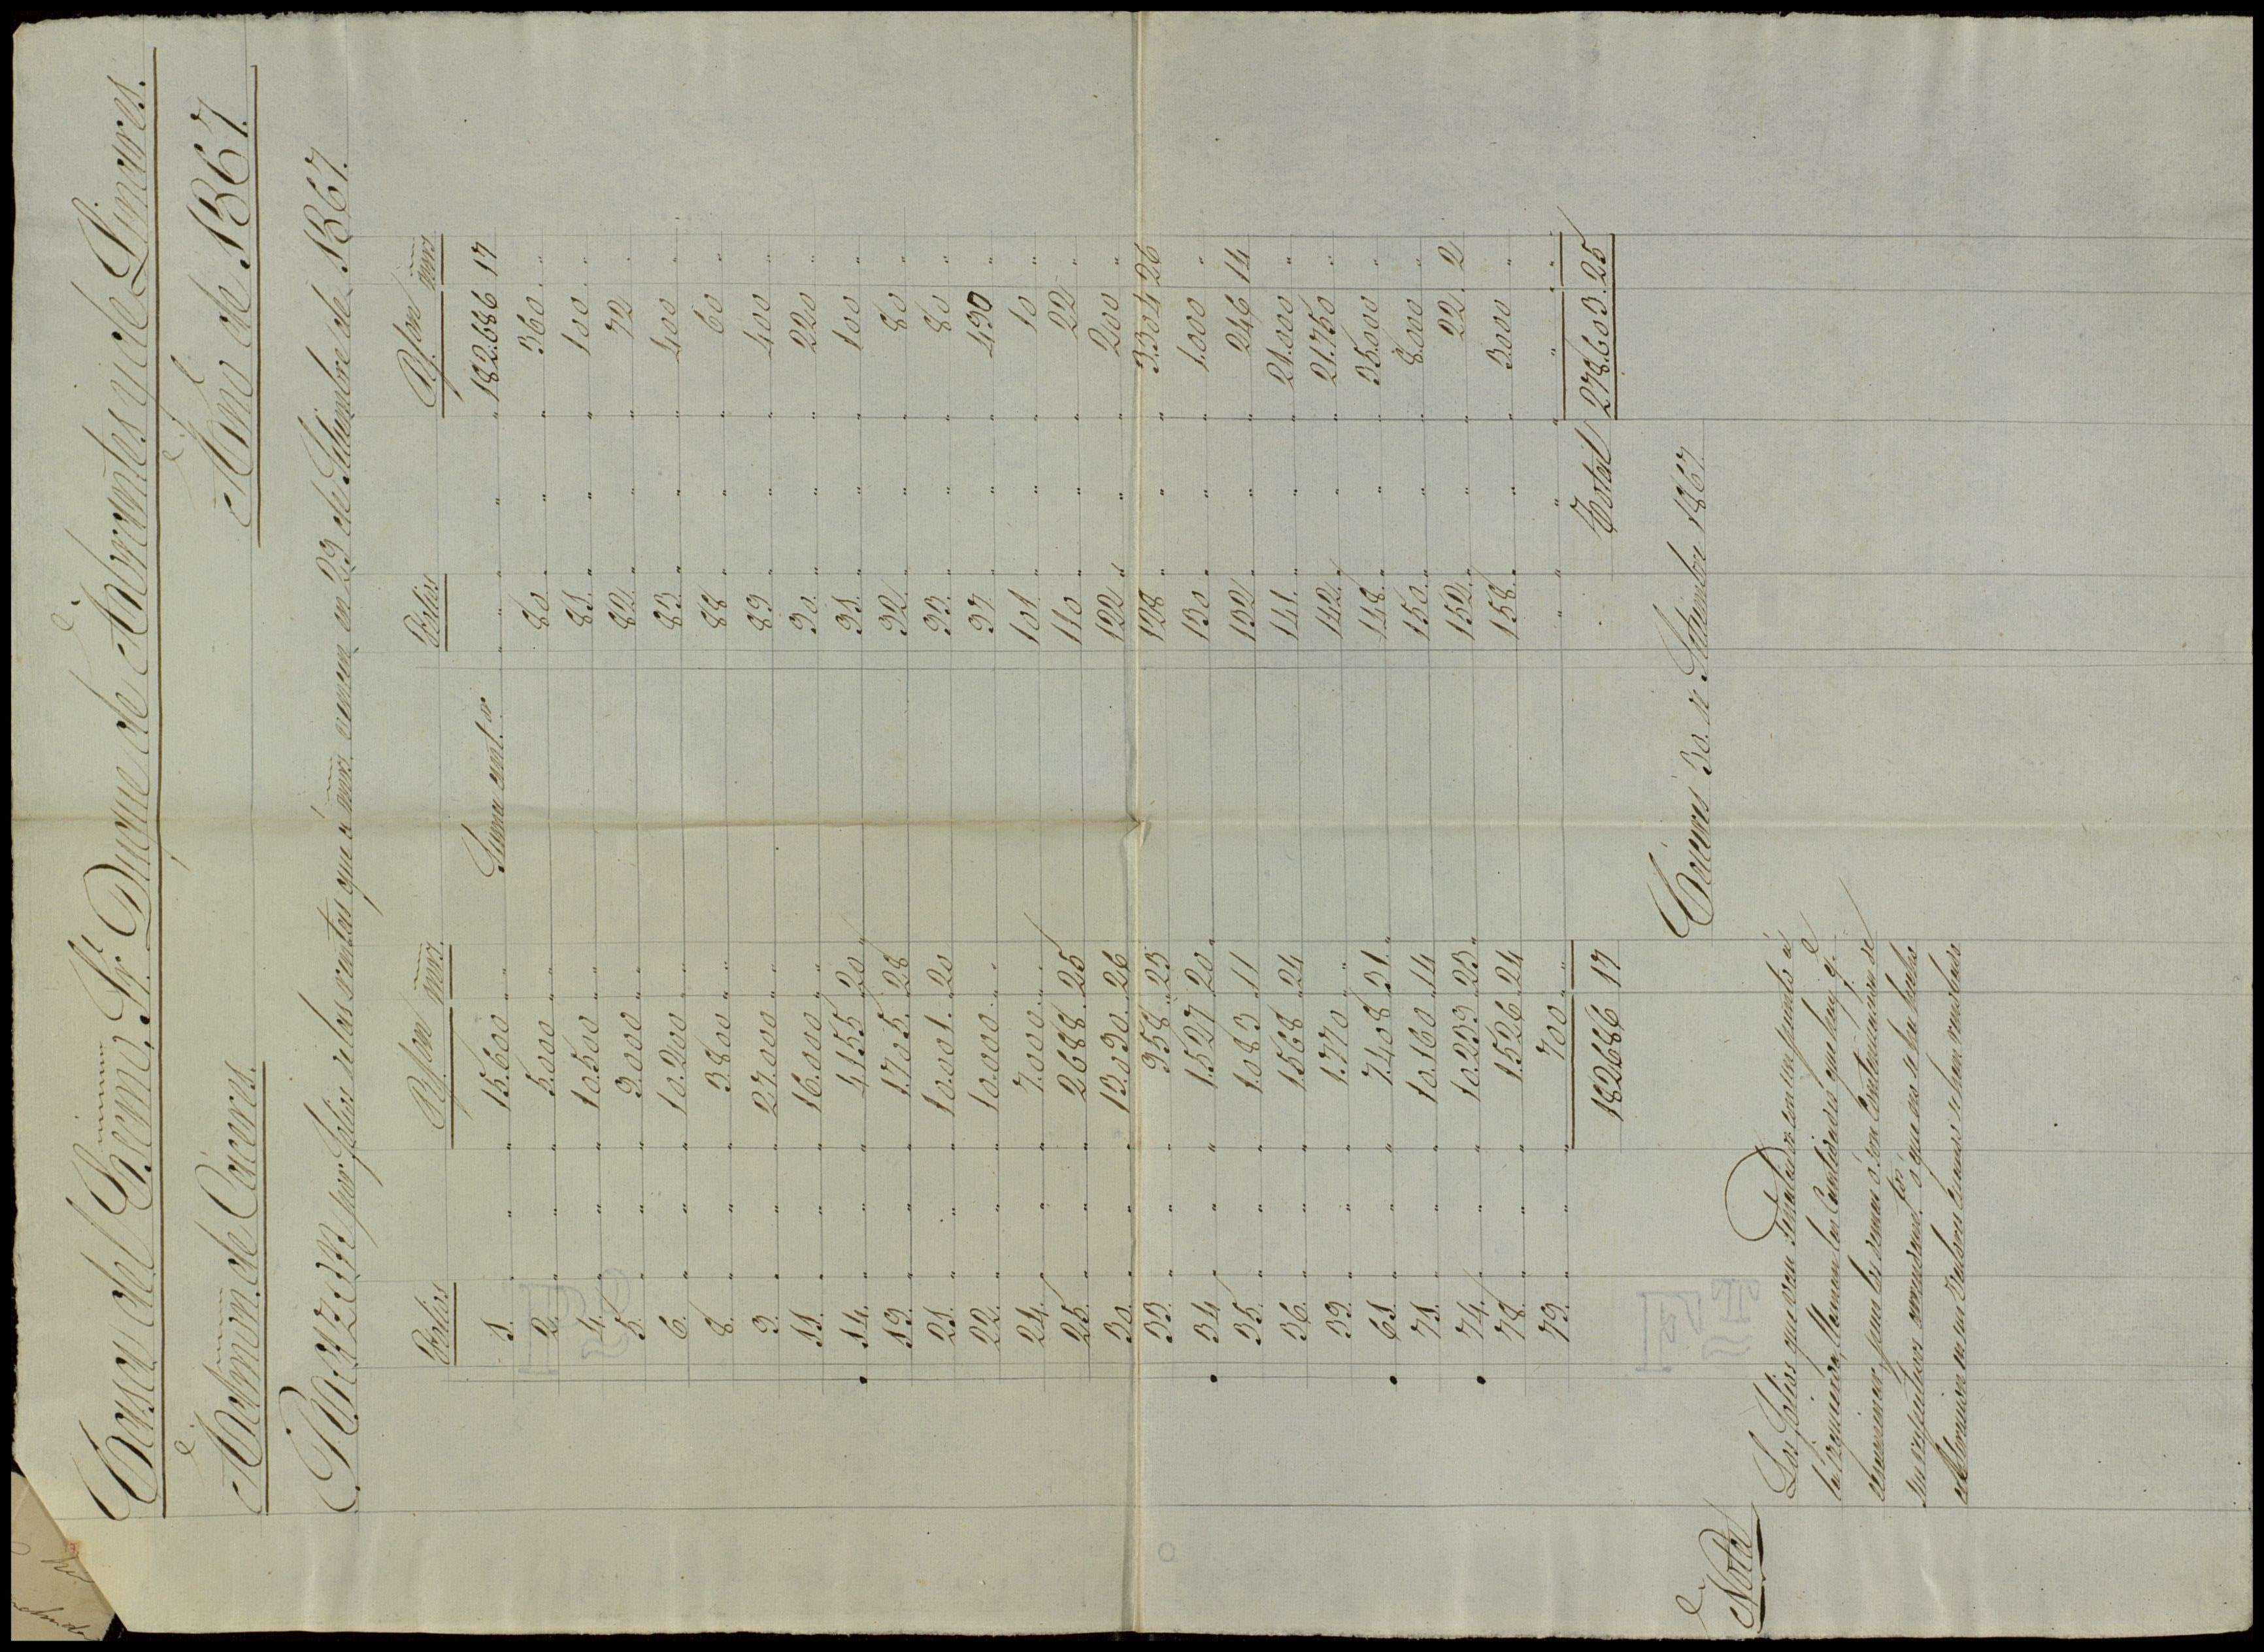 Casa del Excmo. Sr. Duque de Abrantes y de Linares.
Admon. de Cáceres. Año de 1867.
RAZON por folios de las rentas que á mrs vencen en 29 de Setiembre de 1867.
Folios Rs. von mrs.
1. " " 15.600 "
2. " " 5.000 "
4. " " 10.500 "
5. " " 9.000 "
6. " " 10.200 "
8. " " 3.800 "
9. " " 27.000 "
11. " " 16.000 "
14. " " 4.155 20
19. " " 1.705 28
21. " " 10.001 20
22. " " 10.000 "
24. " " 7.000 "
25. " " 2.688 25
30. " " 13.030 26
33. " " 958 23
34. " " 1.527 20
35. " " 1.083 11
36. " " 1.568 24
39. " " 1.770 "
61. " " 7.408 31
71. " " 10.160 14
74. " " 10.299 23
78. " " 1.526 24
79. " " 700 "
182.686 17
Folios Rs. von mrs
Suma ant.or " " " 182.686 17
80. " " 360 "
81. " " 100 "
82. " " 72 "
83. " " 400 "
88. " " 60 "
89. " " 400 "
90. " " 220 "
91. " " 100 "
92. " " 80 "
93. " " 80 "
97. " " 490 "
101. " " 10 "
110. " " 22 "
122. " " 200 "
128. " " 3.304 26
130. " " 1.000 "
132. " " 246 14
141. " " 21.000 "
142. " " 21.750 "
148. " " 35.000 "
150. " " 8.000 "
152. " " 22 2
158. " " 3.000 "
Total 278.603 25
Cáceres 30 de Setiembre 1867
Nota
Los folios que van señalados con un punto á
la izquierda, llaman las Cantidades que hay q.e
, para las sumas ó son Continuacion de
sus respectivos ó que no se ha hecho
alteracion en un aun cuando se han